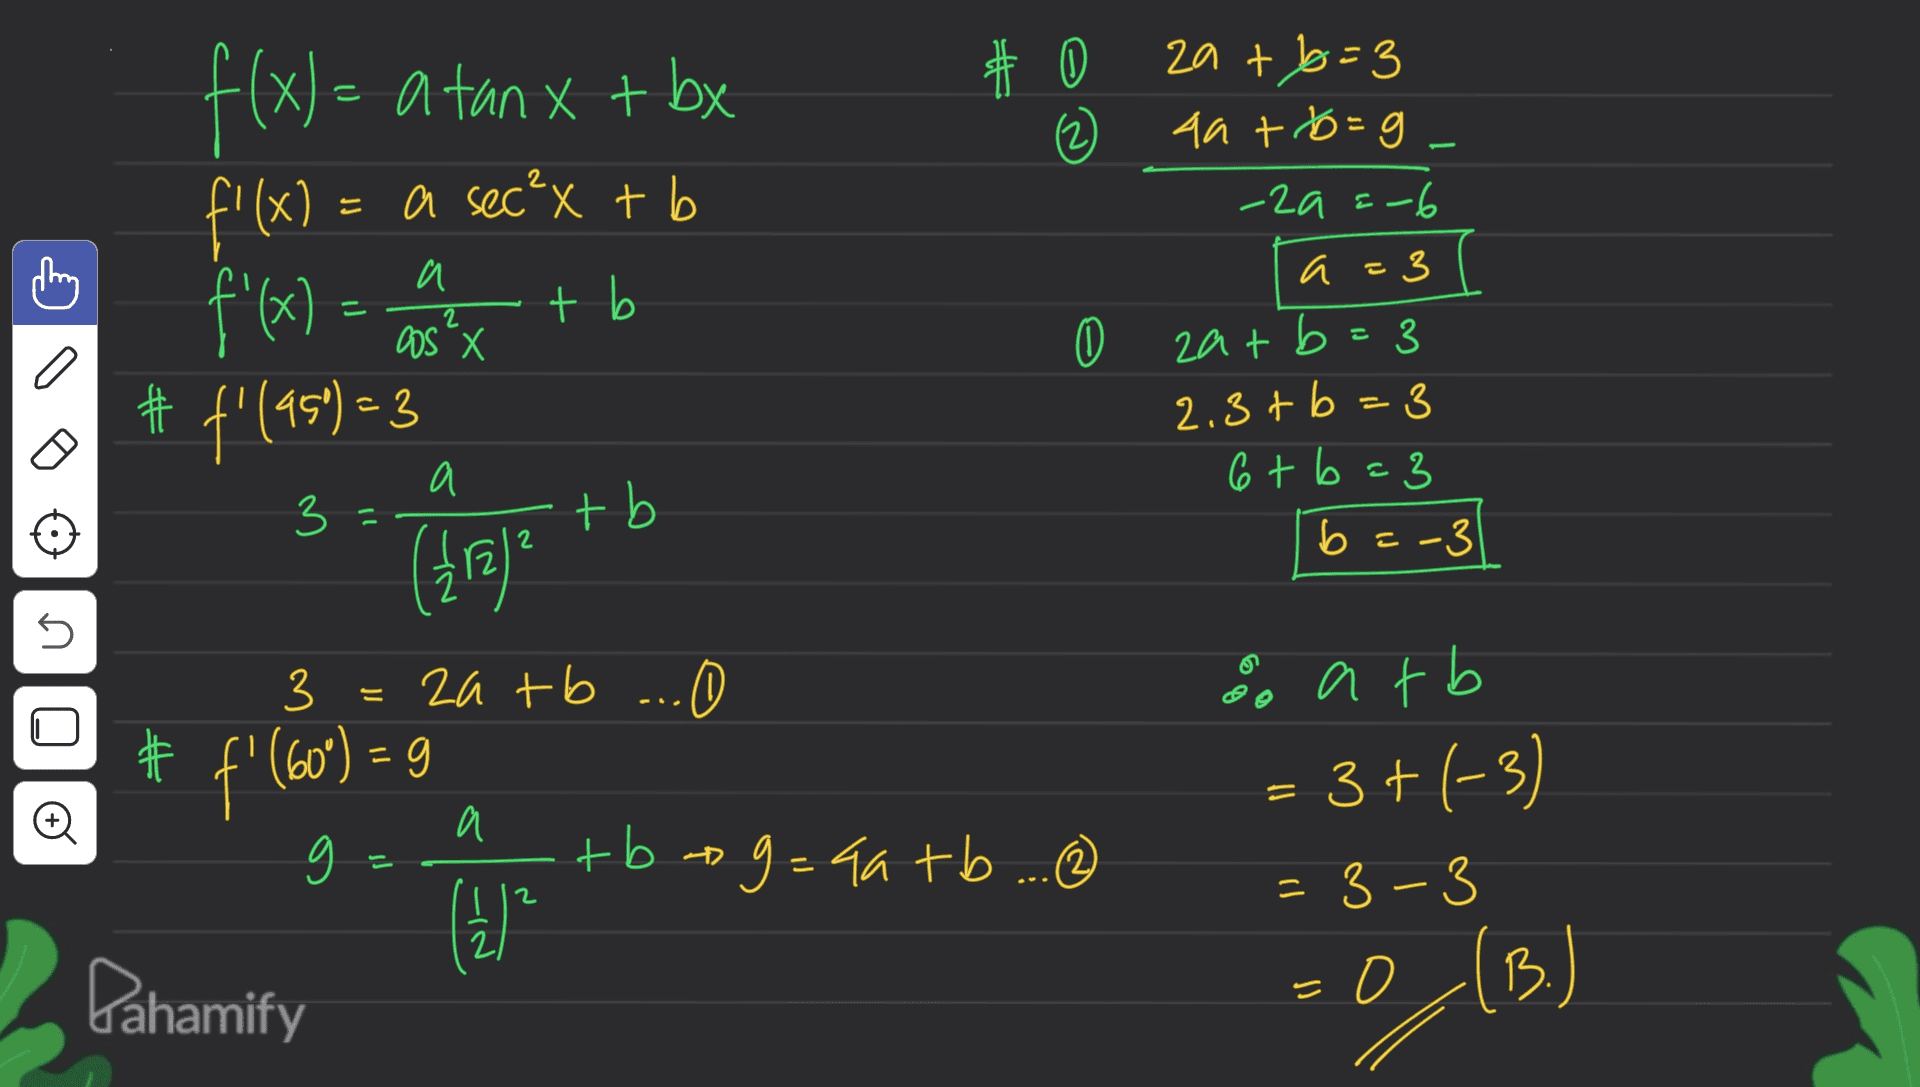 f(x) = a tan x + bx
f'(x) = a sec²x + b
f'(x) = a/cos²x + b
# f'(45°) = 3
3 = a/(1/2 √2)² + b
3 = 2a + b ...①
# f'(60°) = 9
9 = a/(1/2)² + b → 9 = 4a + b ...②
# ① 2a + b = 3
② 4a + b = 9 -
-2a = -6
a = 3
① 2a + b = 3
2.3 + b = 3
6 + b = 3
b = -3
∴ a + b
= 3 + (-3)
= 3 - 3
= 0 (B.)
Pahamify